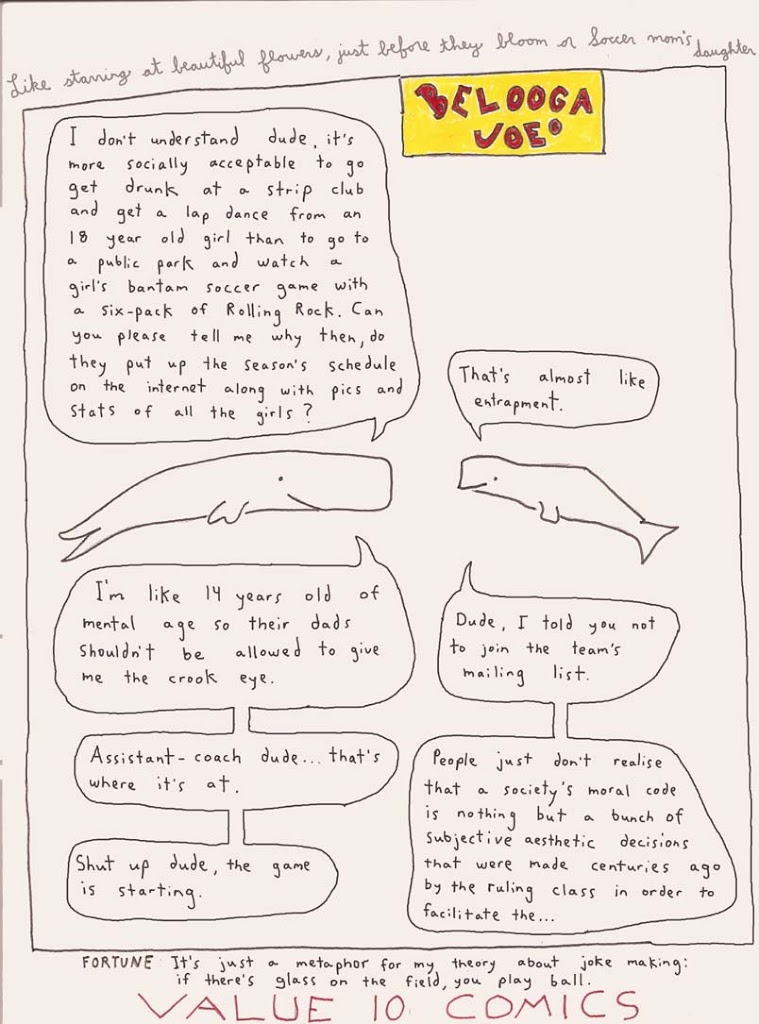 Like starring at beautiful flowers, just before they bloom or Soccer mom's daughter
BELOOGA
JOE
I don't understand dude, it's
more socially acceptable to go
get drunk at a strip club
and get a lap dance from an
18 year old girl than to go to
a public park and watch a
girl's bantam soccer game with
a six-pack of Rolling Rock. Can
you please tell me why then, do
they put up the season's schedule
on the internet along with pics and
stats of all the girls?
That's almost like
entrapment.
I'm like 14 years old of
mental age so their dads
shouldn't be allowed to give
me the crook eye.
Dude, I told you not
to join the team's
mailing list.
Assistant-coach dude... that's
where it's at.
People just don't realise
that a society's moral code
is nothing but a bunch of
subjective aesthetic decisions
that were made centuries ago
by the ruling class in order to
facilitate the...
Shut up dude, the game
is starting.
FORTUNE: It's just a metaphor for my theory about joke making:
if there's glass on the field, you play ball.
VALUE 10 COMICS